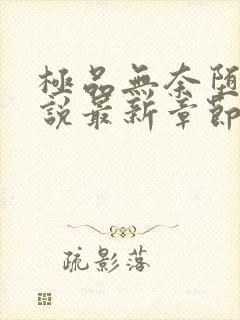 極品無奈堕
說最新章節
疏影落